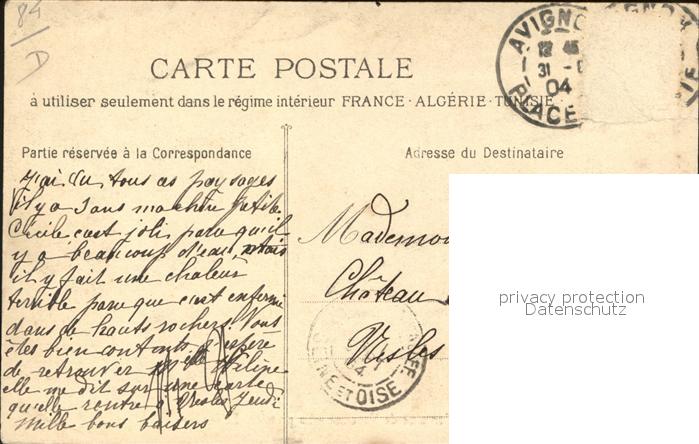 84
D
CARTE POSTALE
à utiliser seulement dans le régime intérieur FRANCE · ALGÉRIE · TUNISIE
AVIGNON
12 45
31
04
PLACE
Partie réservée à la Correspondance
Adresse du Destinataire
J'ai vu tous ces paysages
il y a 3 ans ma chère petite
Cécile c'est joli parce qu'il
y a beaucoup d'eau, mais
il y fait une chaleur
terrible parce que c'est enfermé
dans de hauts rochers. Vous
êtes bien contents j'espère
de retrouver Melle
elle me dit sur une carte
qu'elle rentre à Presles Jeudi
mille bons baisers
Mademoi
Château
Presles
SEINE ET OISE
privacy protection
Datenschutz